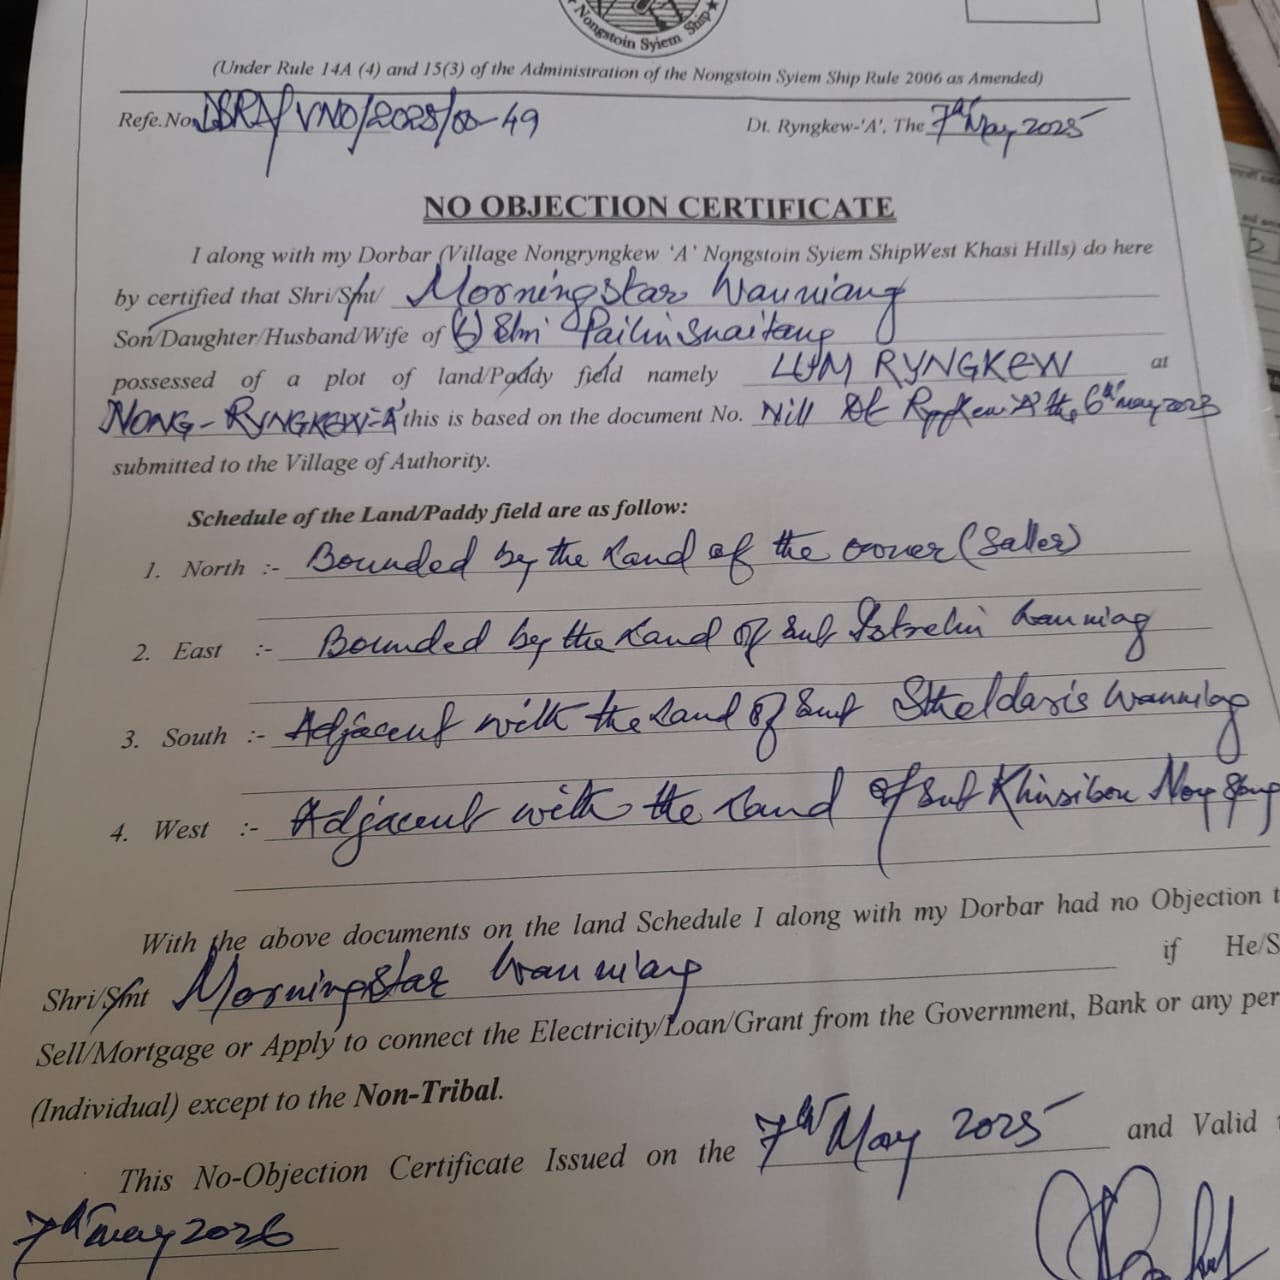 Nongstoin Syiem Ship
(Under Rule 14A (4) and 15(3) of the Administration of the Nongstoin Syiem Ship Rule 2006 as Amended)
Refe.No. /VNO/2025/00-49 Dt. Ryngkew-'A', The 7th May 2025
NO OBJECTION CERTIFICATE
I along with my Dorbar (Village Nongryngkew 'A' Nongstoin Syiem ShipWest Khasi Hills) do here
by certified that Shri/Smt/ Morningstar Wanniang
Son/Daughter/Husband/Wife of (L) Shri Pailin Snaitang
possessed of a plot of land/Paddy field namely LUM RYNGKEW at
NONG-RYNGKEW-'A' this is based on the document No. Nill Dt 'A' the 6th May 2023
submitted to the Village of Authority.
Schedule of the Land/Paddy field are as follow:
1. North :- Bounded by the Land of the owner (Saller)
2. East :- Bounded by the Land of Smt Wanniang
3. South :- Adjacent with the Land of Smt Wanniag
4. West :- Adjacent with the Land of Smt
With the above documents on the land Schedule I along with my Dorbar had no Objection t
Shri/Smt Morningstar Wanniang if He/S
Sell/Mortgage or Apply to connect the Electricity/Loan/Grant from the Government, Bank or any per
(Individual) except to the Non-Tribal.
This No-Objection Certificate Issued on the 7th May 2025 and Valid
7th may 2026